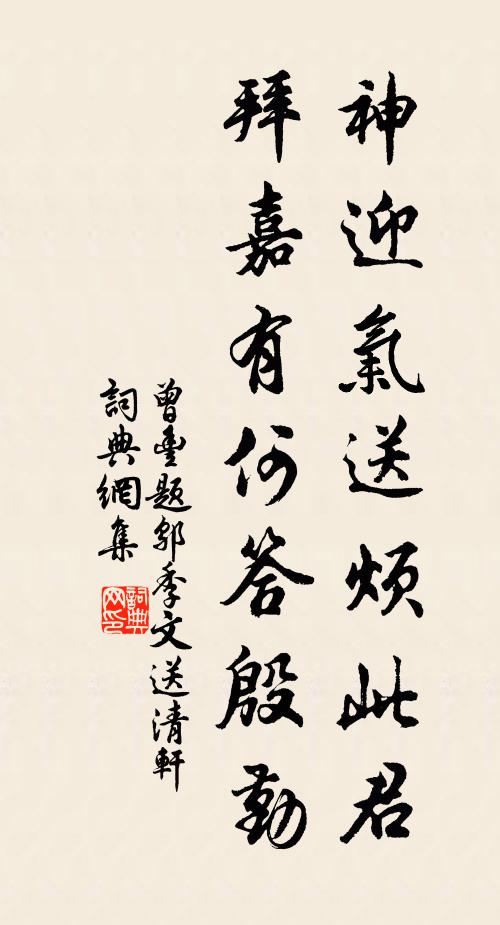 神迎氣送煩此君
拜嘉有何答殷勤
曾豐題鄔季文送清軒
詞典網集
詞典网印